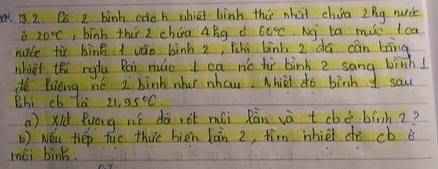 13.2. Có 2 bình cách nhiệt bình thứ nhất chứa 2kg nước
ở 20°C, bình thứ 2 chứa 4kg ở 60°C. Ng ta múc 1 ca
nước từ bình 1 vào bình 2, khi bình 2 đã cân bằng
nhiệt thì ngta lại múc 1 ca nc từ bình 2 sang bình 1
để lượng nc 2 bình như nhau. Nhiệt độ bình 1 sau
khi cb là 21,95°C
a) X/đ lượng nc đã rót mỗi lần và t cb ở bình 2?
b) Nếu tiếp tục thực hiện lần 2, tìm nhiệt độ cb ở
mỗi bình.